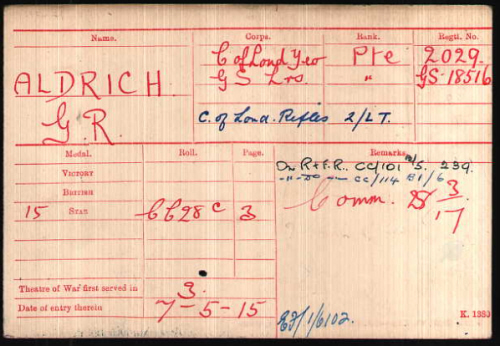 Name. Corps. Rank. Regtl. No.
ALDRICH C of Lond Yeo Pte 2029.
G.R. G S Lrs. " GS-18516
C. of Lond. Rifles 2/LT.
Medal. Roll. Page. Remarks.
VICTORY
BRITISH
15 STAR CC28 C 3
CC/101 239.
CC/114 E1/6
Comm. 3/17
Theatre of War first served in 3.
Date of entry therein 7-5-15
K. 1380